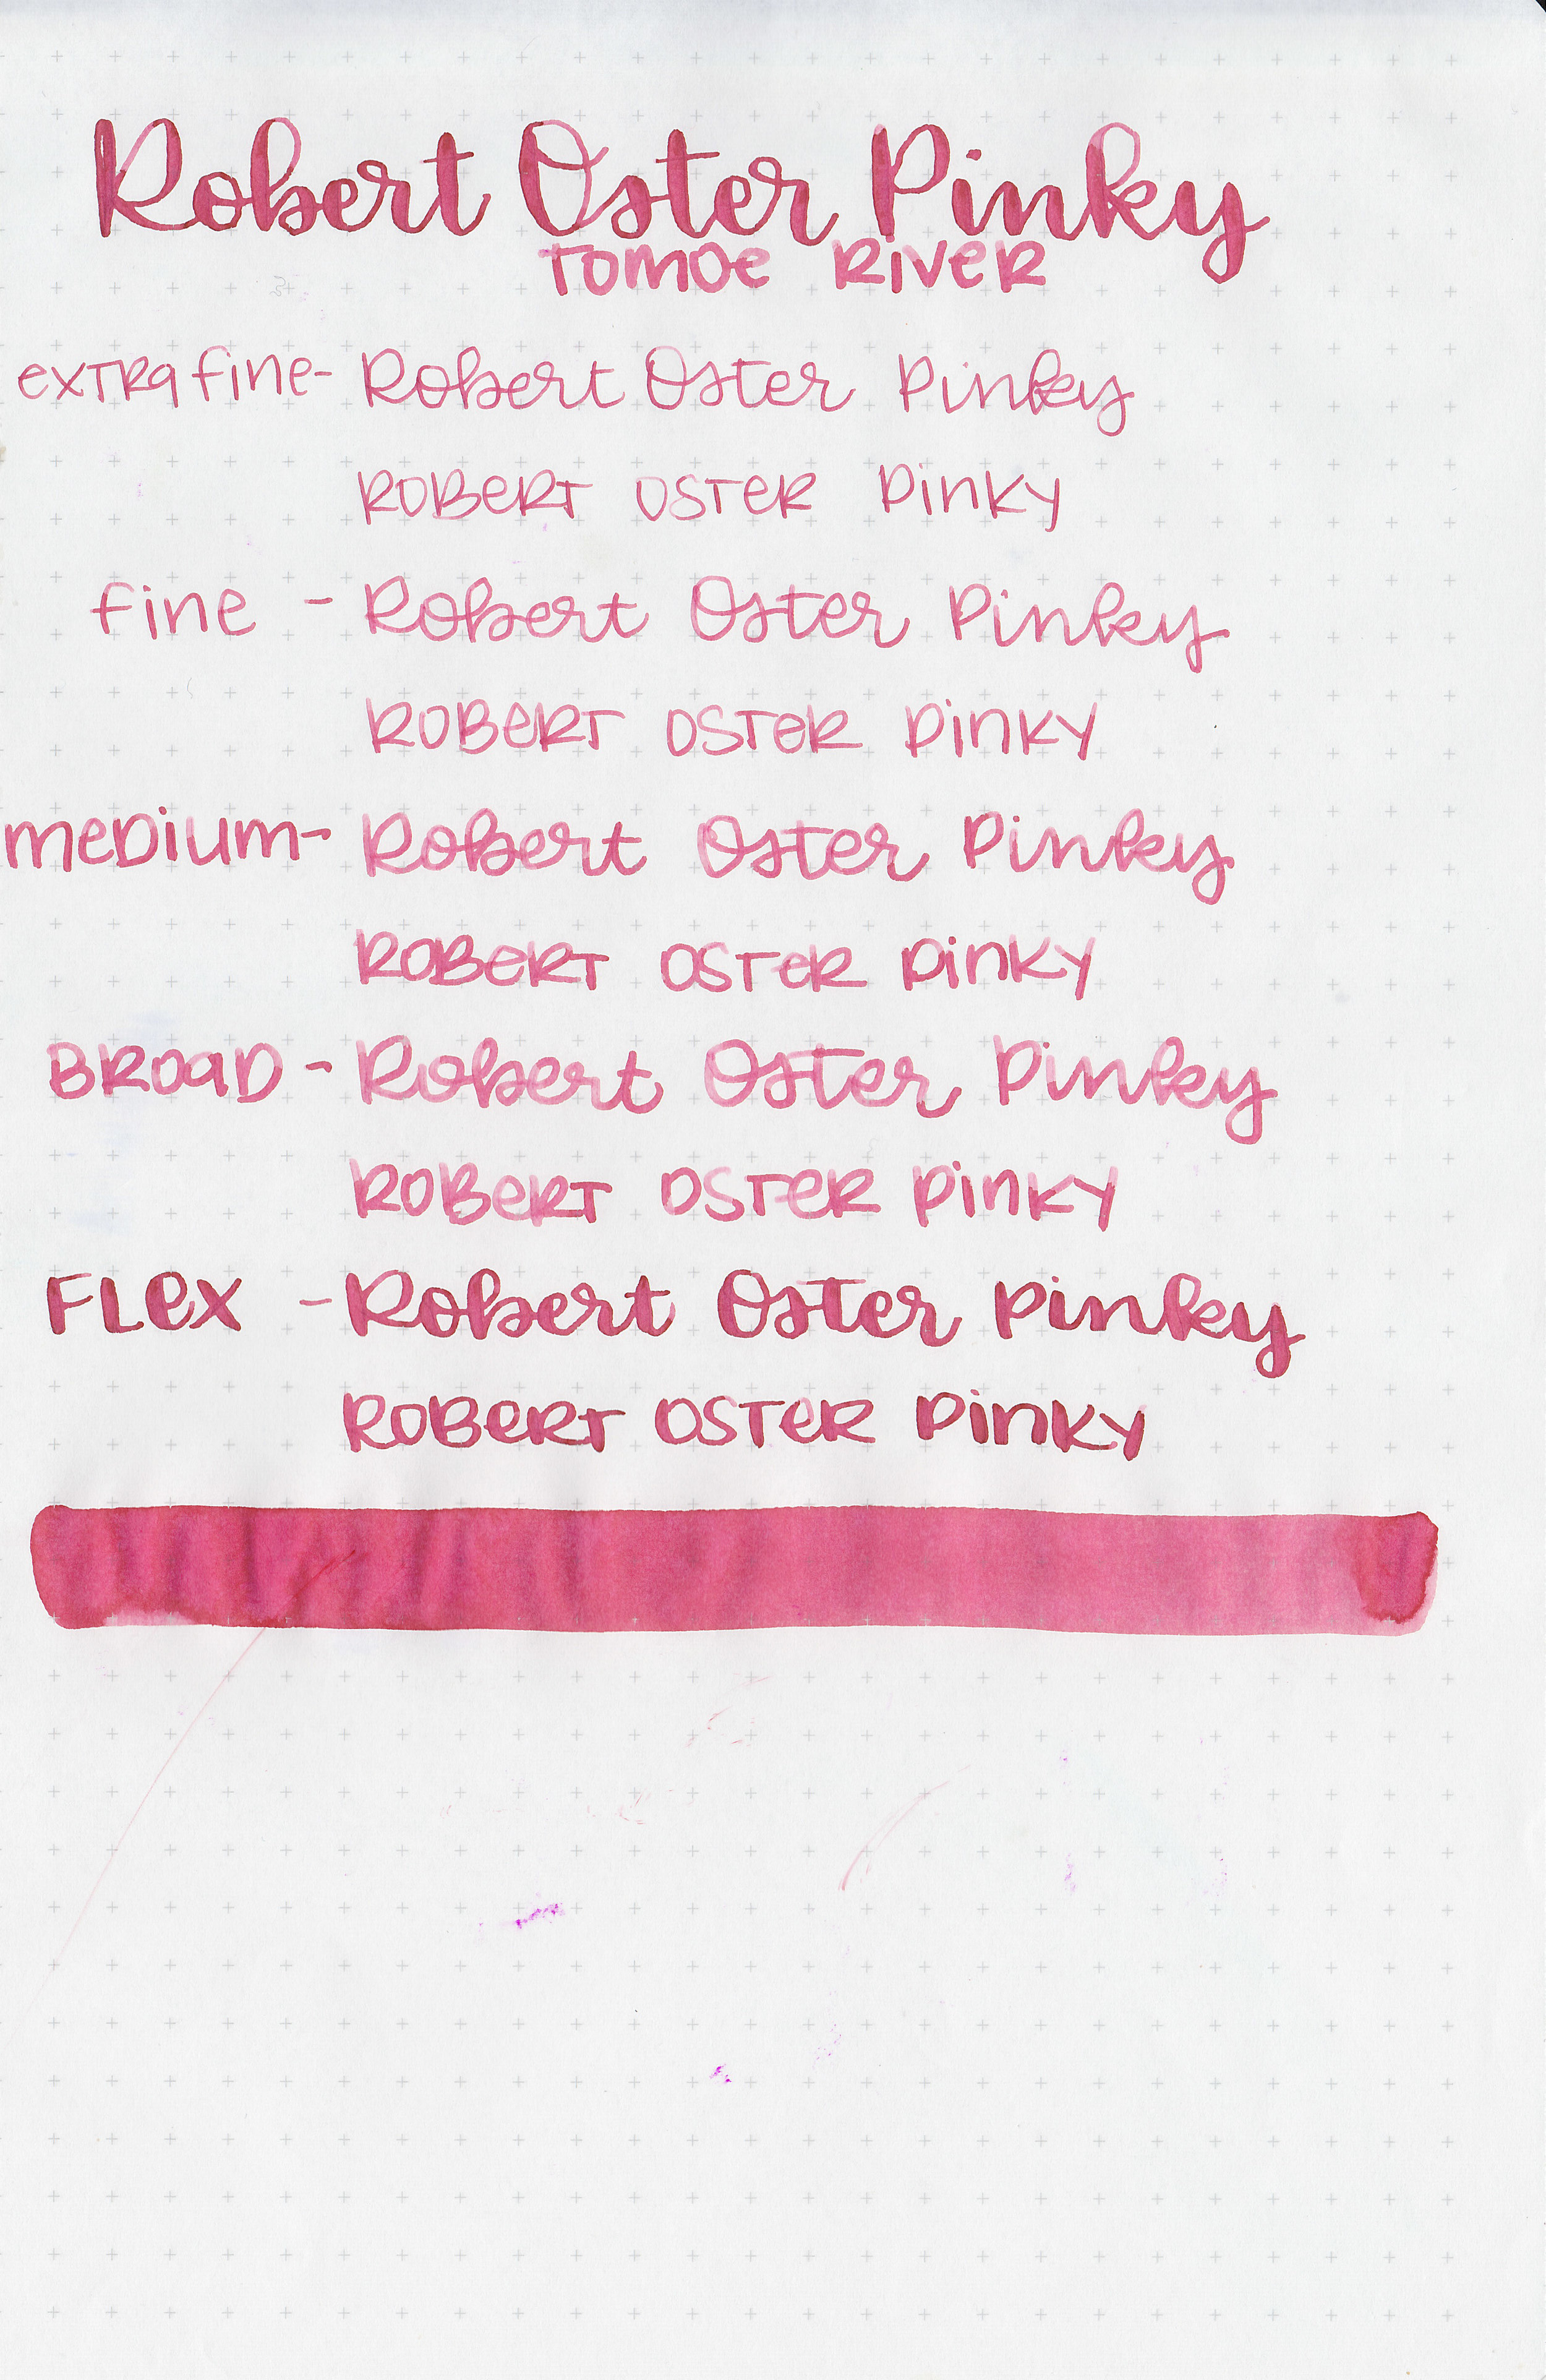 Robert Oster Pinky
Tomoe River
extra fine- Robert Oster Pinky
Robert Oster Pinky
fine - Robert Oster Pinky
Robert Oster Pinky
medium- Robert Oster Pinky
Robert Oster Pinky
Broad - Robert Oster Pinky
Robert Oster Pinky
Flex - Robert Oster Pinky
Robert Oster Pinky